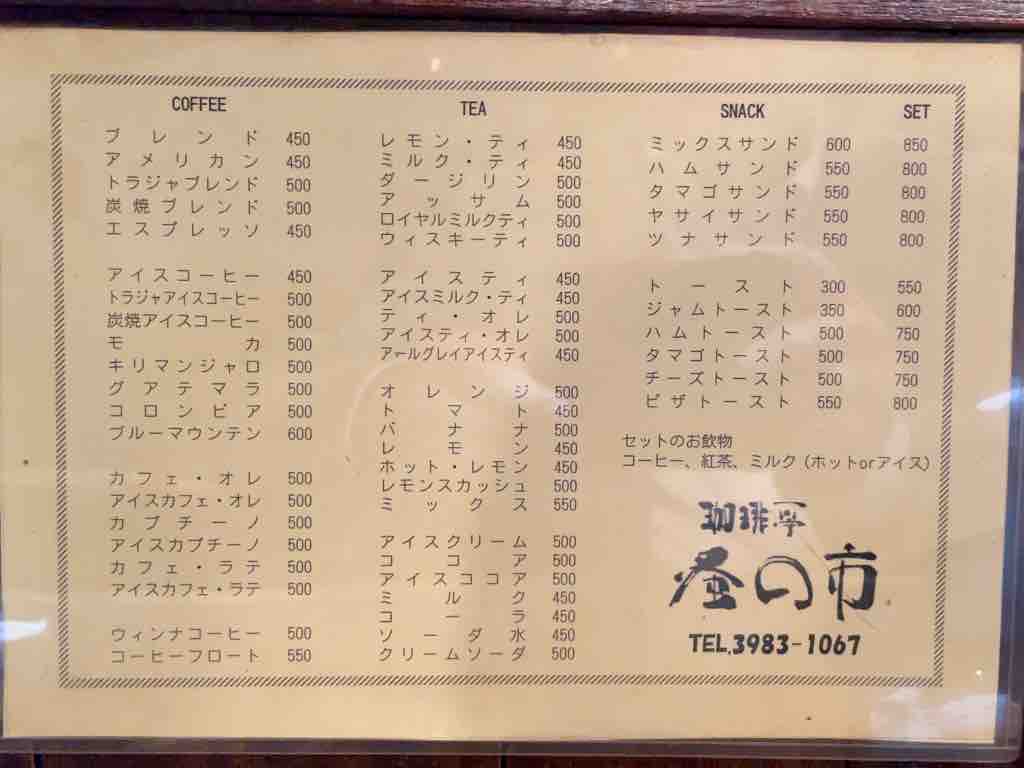 COFFEE
ブレンド 450
アメリカン 450
トラジャブレンド 500
炭焼ブレンド 500
エスプレッソ 450
アイスコーヒー 450
トラジャアイスコーヒー 500
炭焼アイスコーヒー 500
モカ 500
キリマンジャロ 500
グアテマラ 500
コロンビア 500
ブルーマウンテン 600
カフェ・オレ 500
アイスカフェ・オレ 500
カプチーノ 500
アイスカプチーノ 500
カフェ・ラテ 500
アイスカフェ・ラテ 500
ウィンナコーヒー 500
コーヒーフロート 550
TEA
レモン・ティ 450
ミルク・ティ 450
ダージリン 500
アッサム 500
ロイヤルミルクティ 500
ウィスキーティ 500
アイスティ 450
アイスミルク・ティ 450
ティ・オレ 500
アイスティ・オレ 500
アールグレイアイスティ 450
オレンジ 500
トマト 450
バナナ 500
レモン 450
ホット・レモン 450
レモンスカッシュ 500
ミックス 550
アイスクリーム 500
ココア 500
アイスココア 500
ミルク 450
コーラ 450
ソーダ水 450
クリームソーダ 500
SNACK SET
ミックスサンド 600 850
ハムサンド 550 800
タマゴサンド 550 800
ヤサイサンド 550 800
ツナサンド 550 800
トースト 300 550
ジャムトースト 350 600
ハムトースト 500 750
タマゴトースト 500 750
チーズトースト 500 750
ピザトースト 550 800
セットのお飲物
コーヒー、紅茶、ミルク（ホットorアイス）
珈琲亭
蚤の市
TEL.3983-1067